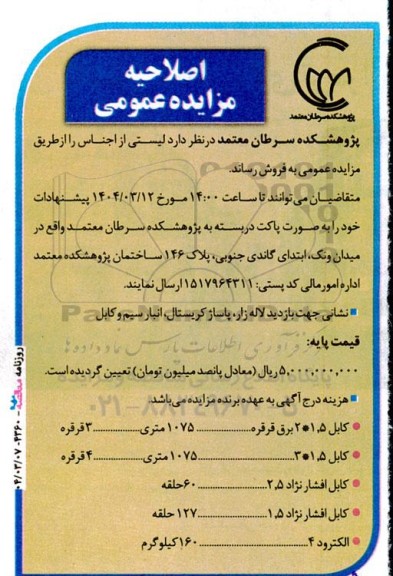 پژوهشکده سرطان معتمد
اصلاحیه
مزایده عمومی
پژوهشکده سرطان معتمد درنظر دارد لیستی از اجناس را ازطریق
مزایده عمومی به فروش رساند.
متقاضیان می توانند تا ساعت ۱۴:۰۰ مورخ ۱۴۰۴/۰۳/۱۲ پیشنهادات
خود را به صورت پاکت دربسته به پژوهشکده سرطان معتمد واقع در
میدان ونک، ابتدای گاندی جنوبی، پلاک ۱۴۶ ساختمان پژوهشکده معتمد
اداره امور مالی کد پستی: ۱۵۱۷۹۶۴۳۱۱ ارسال نمایند.
نشانی جهت بازدید لاله زار، پاساژ کریستال، انبار سیم و کابل
قیمت پایه:
۵,۰۰۰,۰۰۰,۰۰۰ ریال (معادل پانصد میلیون تومان) تعیین گردیده است.
هزینه درج آگهی به عهده برنده مزایده می باشد.
کابل ۱,۵*۲ برق قرقره ............... ۱۰۷۵ متری ............... ۳ قرقره
کابل ۱,۵*۳ ............... ۱۰۷۵ متری ............... ۴ قرقره
کابل افشار نژاد ۲,۵ ............... ۶۰ حلقه
کابل افشار نژاد ۱,۵ ............... ۱۲۷ حلقه
الکترود ۴ ............... ۱۶۰ کیلوگرم
روزنامه - ۴۳۶۰ - ۰۴/۰۳/۰۷